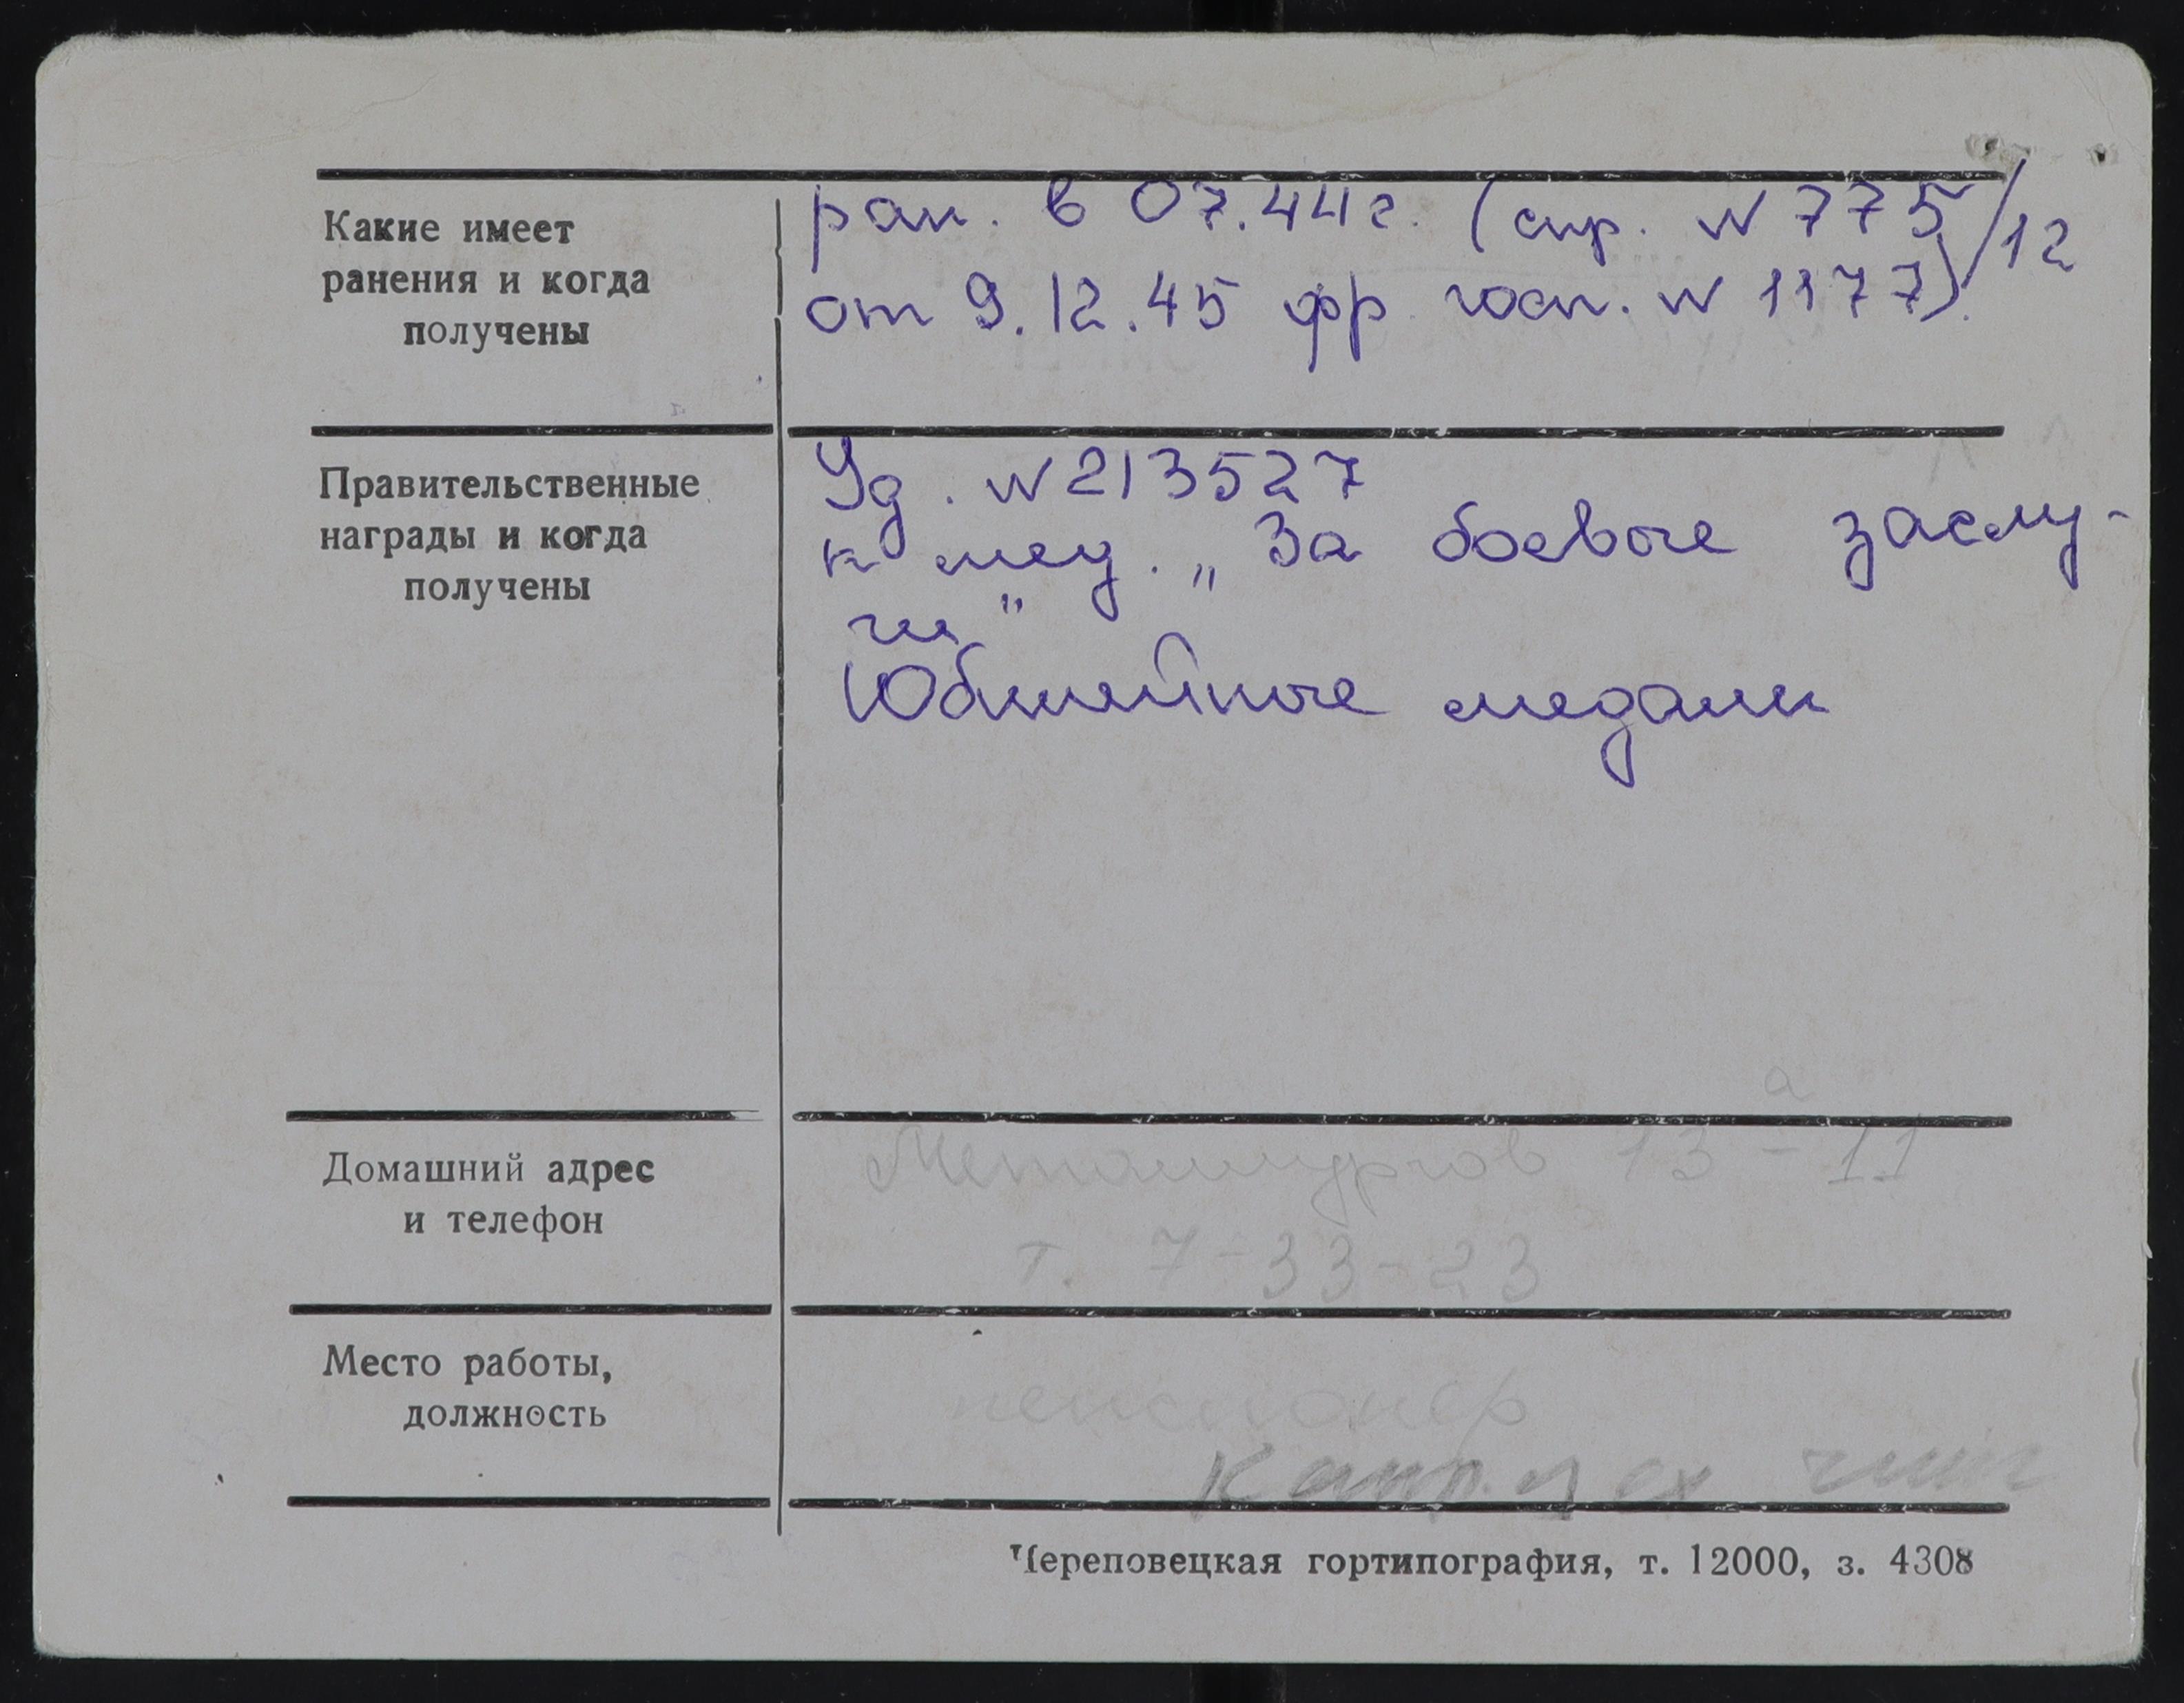 Какие имеет
ранения и когда
получены
ран. в 07.44 г. (спр. N 775/12
от 9.12.45 фр. госп. N 1177).
Правительственные
награды и когда
получены
Уд. N 213527
к мед. „За боевые заслу-
ги"
Юбилейные медали
Домашний адрес
и телефон
Металлургов 13а-11
т. 7-33-23
Место работы,
должность
пенсионер
Череповецкая гортипография, т. 12000, з. 4308